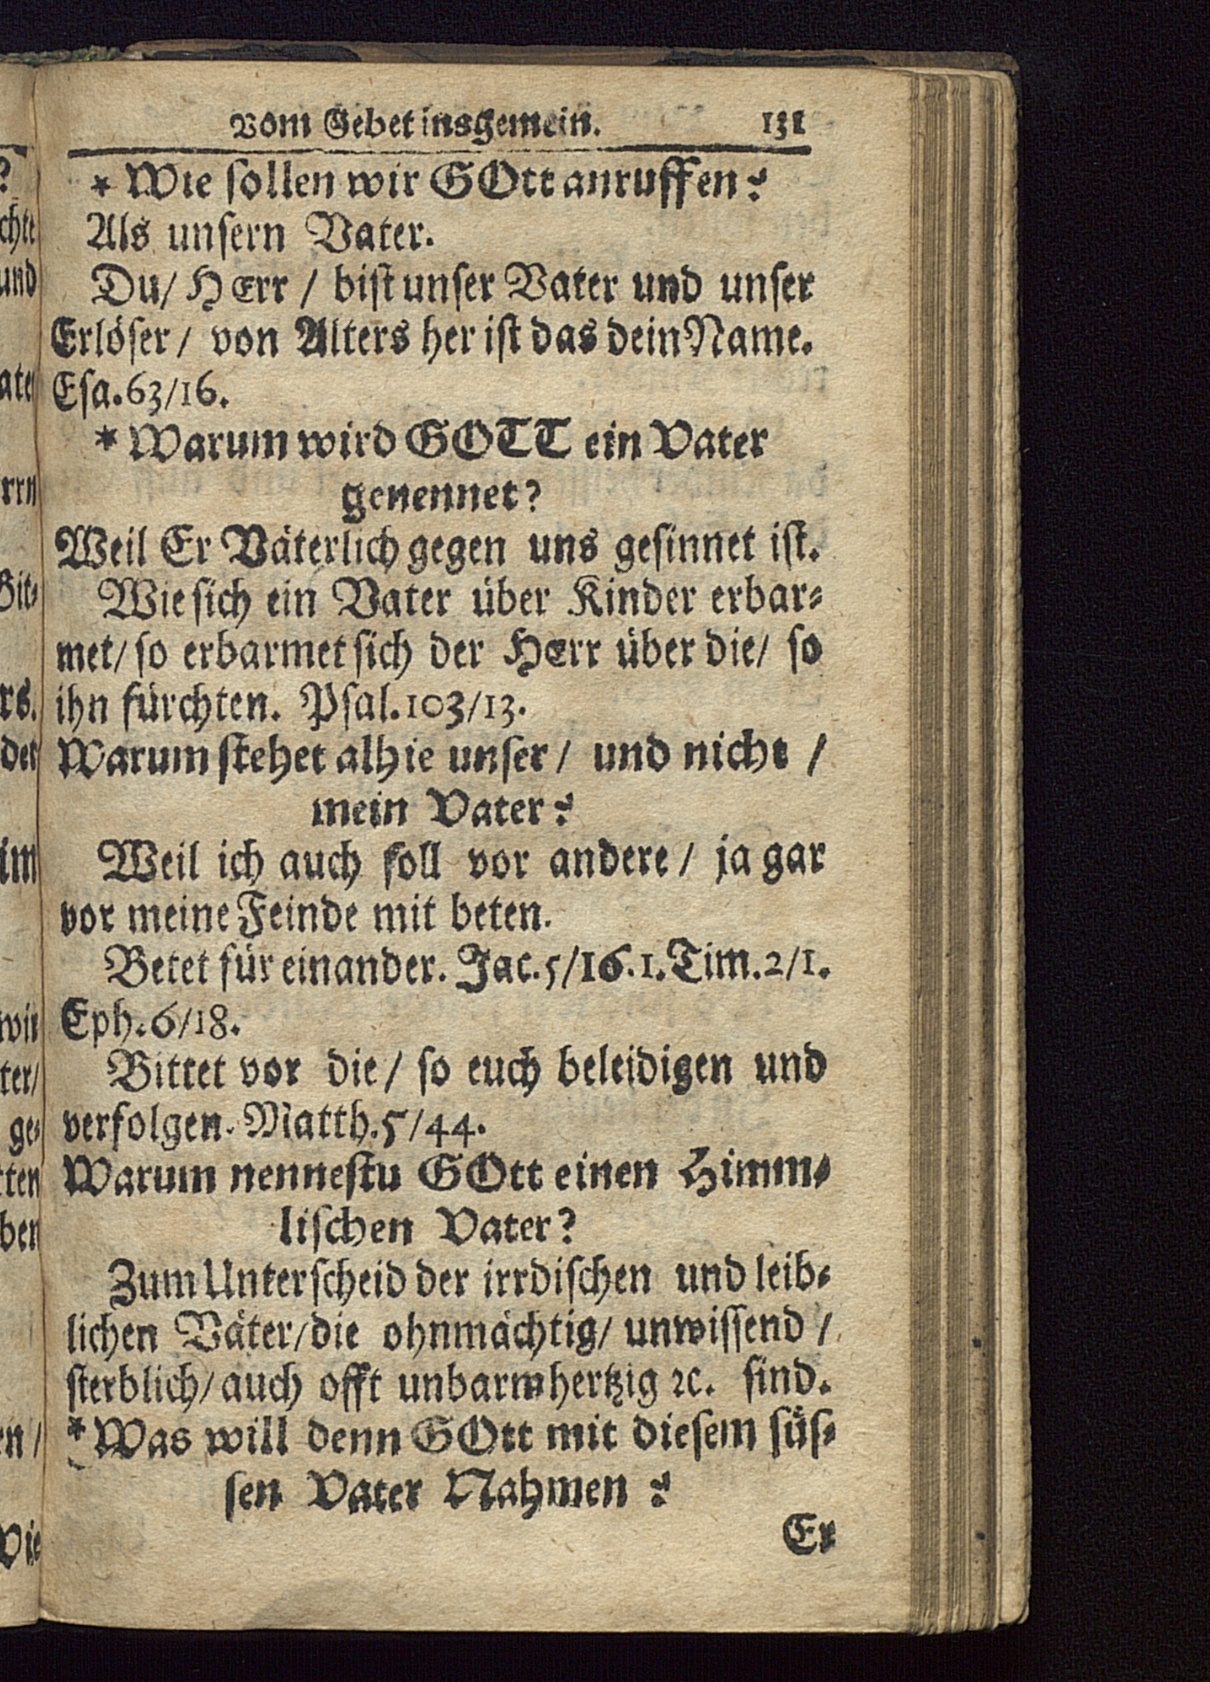 vom Gebet insgemein. 131
* Wie sollen wir GOtt anruffen?
Als unsern Vater.
Du/ HErr / bist unser Vater und unser
Erlöser/ von Alters her ist das dein Name.
Esa. 63/16.
* Warum wird GOTT ein Vater
genennet?
Weil Er Väterlich gegen uns gesinnet ist.
Wie sich ein Vater über Kinder erbar-
met/ so erbarmet sich der HErr über die/ so
ihn fürchten. Psal. 103/13.
Warum stehet alhie unser/ und nicht /
mein Vater?
Weil ich auch soll vor andere/ ja gar
vor meine Feinde mit beten.
Betet für einander. Jac. 5/16. 1. Tim. 2/1.
Eph. 6/18.
Bittet vor die/ so euch beleidigen und
verfolgen. Matth. 5/44.
Warum nennestu GOtt einen Himm-
lischen Vater?
Zum Unterscheid der irrdischen und leib-
lichen Väter/ die ohnmächtig/ unwissend /
sterblich/ auch offt unbarmhertzig ꝛc. sind.
* Was will denn GOtt mit diesem süs-
sen Vater Nahmen?
Er